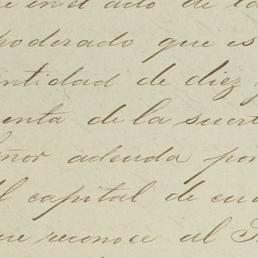 en el acto de la
poderado que es
ntidad de diez y
enta de la suert
eñor adeuda por
l capital de cua
ue reconoce al